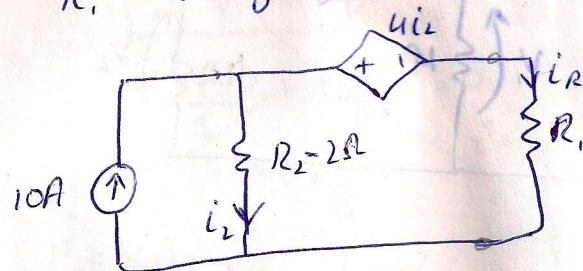 R₁
4i₂
+ -
i_R
R₁
R₂-2Ω
10A
i₂